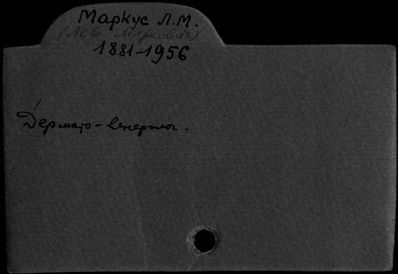 Маркус Л.М.
(Лев Маркович)
1881-1956
Дермато-венеролог.